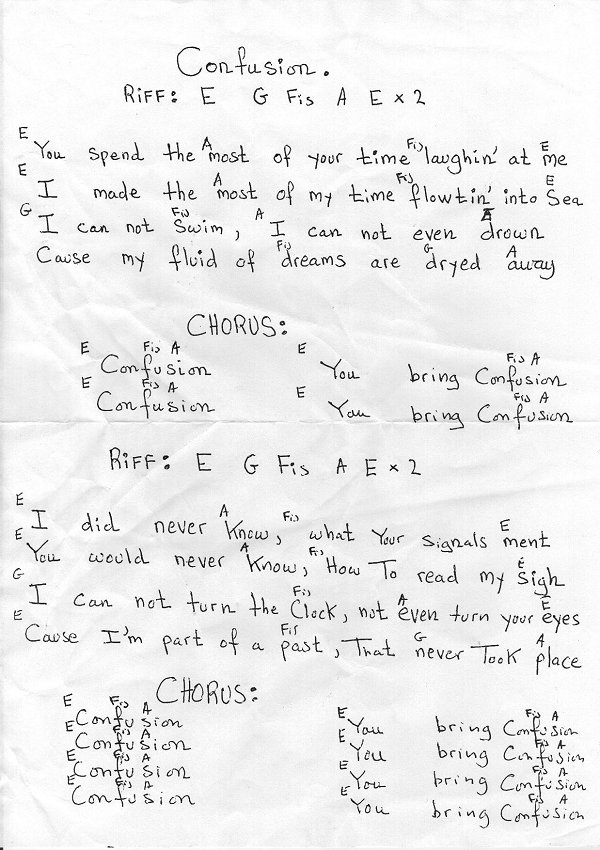 Confusion.
RiFF: E G Fis A E x 2
E A Fis E
You spend the most of your time laughin' at me
E A Fis E
I made the most of my time flowtin' into Sea
G Fis A E
I can not Swim, I can not even drown
Fis G A
Cause my fluid of dreams are dryed away
CHORUS:
E Fis A E Fis A
Confusion You bring Confusion
E Fis A E Fis A
Confusion You bring Confusion
RiFF: E G Fis A E x 2
E A Fis E
I did never Know, what Your signals ment
E A Fis E
You would never Know, How To read my sigh
G Fis A E
I can not turn the Clock, not even turn your eyes
E Fis G A
Cause I'm part of a past, That never Took place
CHORUS:
E Fis A E Fis A
Confusion You bring Confusion
E Fis A E Fis A
Confusion You bring Confusion
E Fis A E Fis A
Confusion You bring Confusion
E Fis A E Fis A
Confusion You bring Confusion